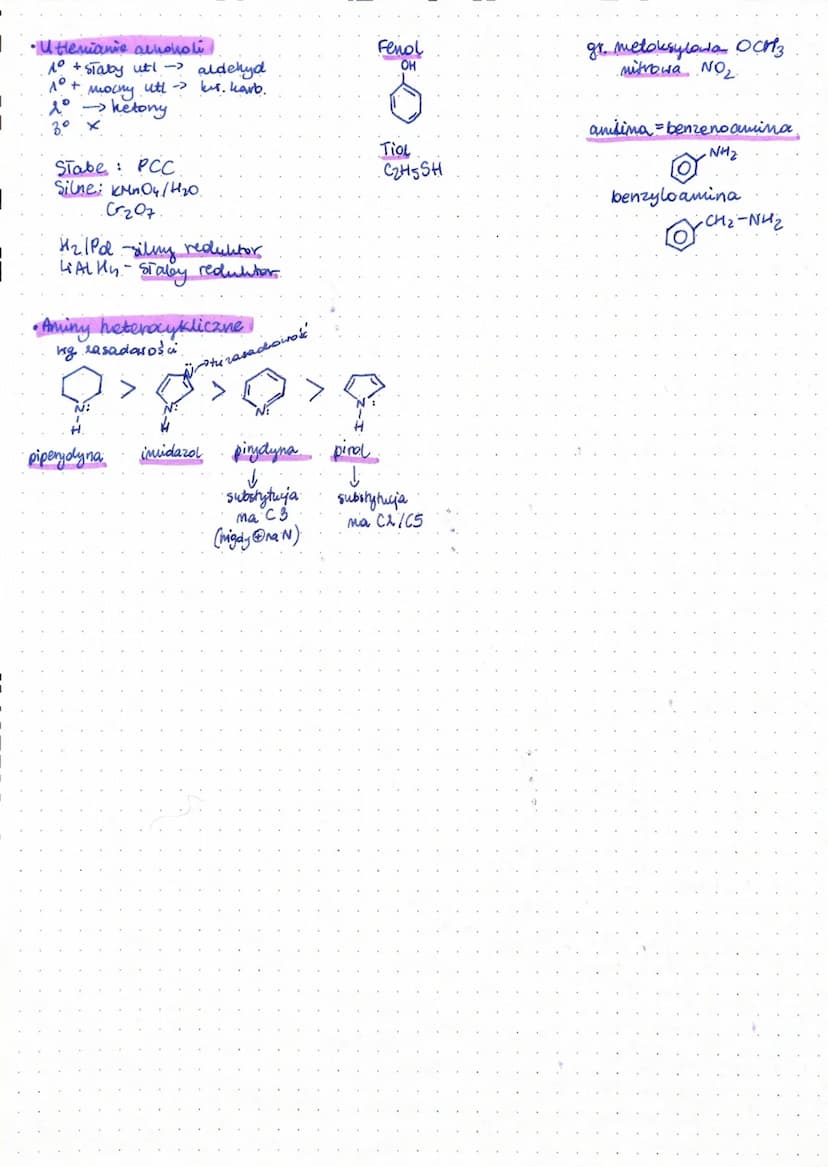 • Utlenianie alkoholi
1° + słaby utl → aldehyd
1° + mocny utl → kw. karb.
2° → ketony
3° x
Słabe : PCC
Silne: KMnO4/H2O
Cr2O7
H2/Pd - silny reduktor
LiAlH4 - słaby reduktor
Fenol
OH
Tiol
C2H5SH
gr. metoksylowa OCH3
nitrowa NO2
anilina = benzenoamina
NH2
benzyloamina
CH2-NH2
• Aminy heterocykliczne
wg. zasadowości
N: → tu zasadowość
> > >
N: N: N: N:
H H H
piperydyna imidazol pirydyna pirol
↓ ↓
substytucja substytucja
na C3 na C2/C5
(nigdy ⊕ na N)